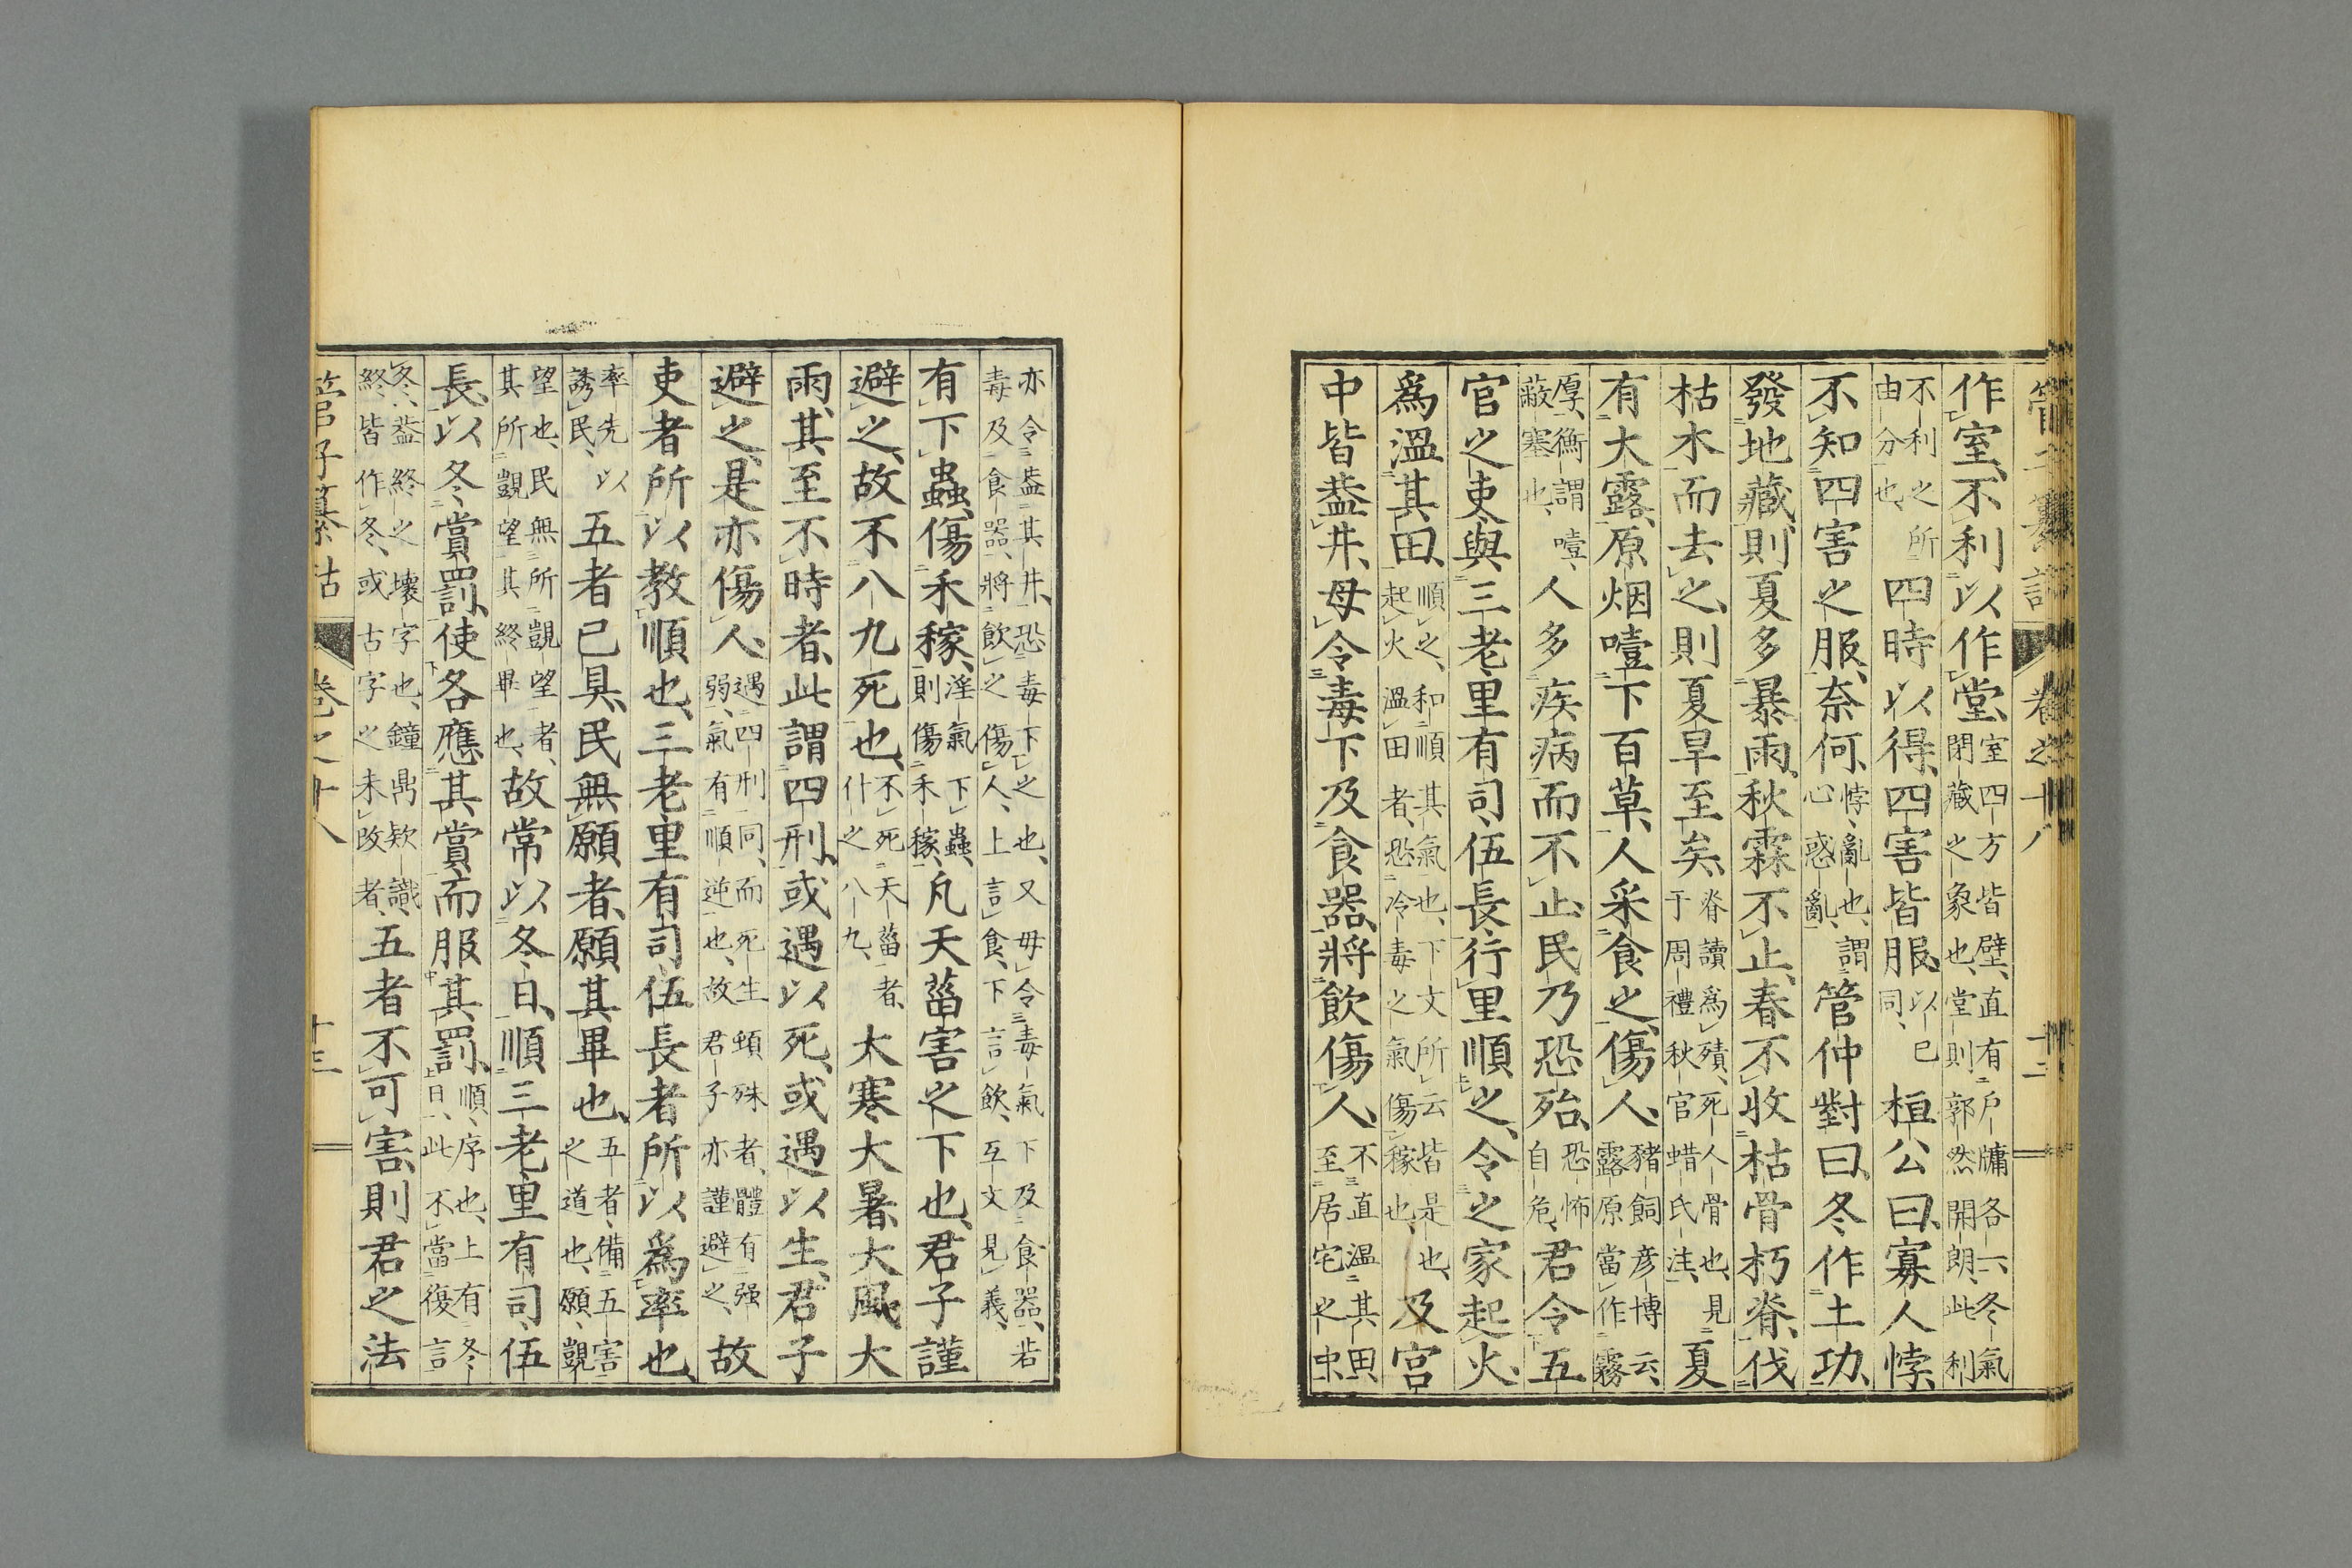 管子纂詁　卷之十八　十二
作室、不利以作堂、室四方皆壁、直有戶牖各一、冬氣閉藏之象也、堂則郭然開朗、此利
不利之所由分也、四時以得、四害皆服、以已同、桓公曰、寡人悖、
不知四害之服、奈何、悖、亂也、謂心惑亂、管仲對曰、冬作土功、
發地藏、則夏多暴雨、秋霖不止、春不收枯骨朽脊、伐
枯木而去之、則夏旱至矣、脊讀爲殰、死人骨也、見于周禮秋官蜡氏注、夏
有大露、原烟噎下百草、人采食之、傷人、豬飼彥博云、露原當作霧
厚、衡謂噎、蔽塞也、人多疾病而不止、民乃恐殆、恐怖自危、君令五
官之吏、與三老里有司、伍長、行里順之、令之家起火、
爲溫其田、順之、和順其氣也、下文所云皆是也、起火溫田者、恐冷毒之氣傷稼也、不直溫其田、至居宅之中、及宮
中皆蓋井、毋令毒下及食器、將飲傷人、
亦令蓋其井、恐毒下之也、又毋令毒氣下及食器、若毒及食器、將飲之傷人、上言食、下言飲、互文見義、
有下蟲傷禾稼、淫氣下蟲、則傷禾稼、凡天菑害之下也、君子謹
避之、故不八九死也、不死天菑者、什之八九、大寒大暑、大風大
雨、其至不時者、此謂四刑、或遇以死、或遇以生、君子
避之、是亦傷人、遇四刑同、而死生頓殊者、體有强弱、氣有順逆也、故君子亦謹避之、故
吏者所以教順也、三老里有司伍長者所以爲率也、
率先以誘民、五者已具、民無願者、願其畢也、五者、備五害之道也、願、覬
望也、民無所覬望者、其所覬望其終畢也、故常以冬日、順三老里有司、伍
長、以冬賞罰、使各應其賞、而服其罰、順、序也、上有冬日、此不當復言
冬、蓋終之壞字也、鐘鼎欵識、終皆作冬、或古字之未改者、五者不可害、則君之法
管子纂詁　卷之十八　十三